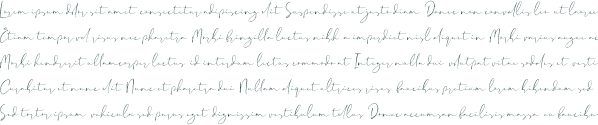 Lorem ipsum dolor sit amet consectetur adipiscing elit Suspendisse at justo diam Donec non convallis leo ut laoree
Etiam tempor vel risus nec pharetra Morbi fringilla luctus nibh a imperdiet nisl aliquet in Morbi varius augue ac
Morbi hendrerit ullamcorper luctus id interdum lectus commodo at Integer nulla dui volutpat vitae sodales et vesti
Curabitur et nunc elit Nunc et pharetra dui Nullam aliquet ultrices risus faucibus pretium lorem bibendum sed
Sed tortor ipsum vehicula sed purus eget dignissim vestibulum tellus Donec accumsan facilisis massa eu faucibu